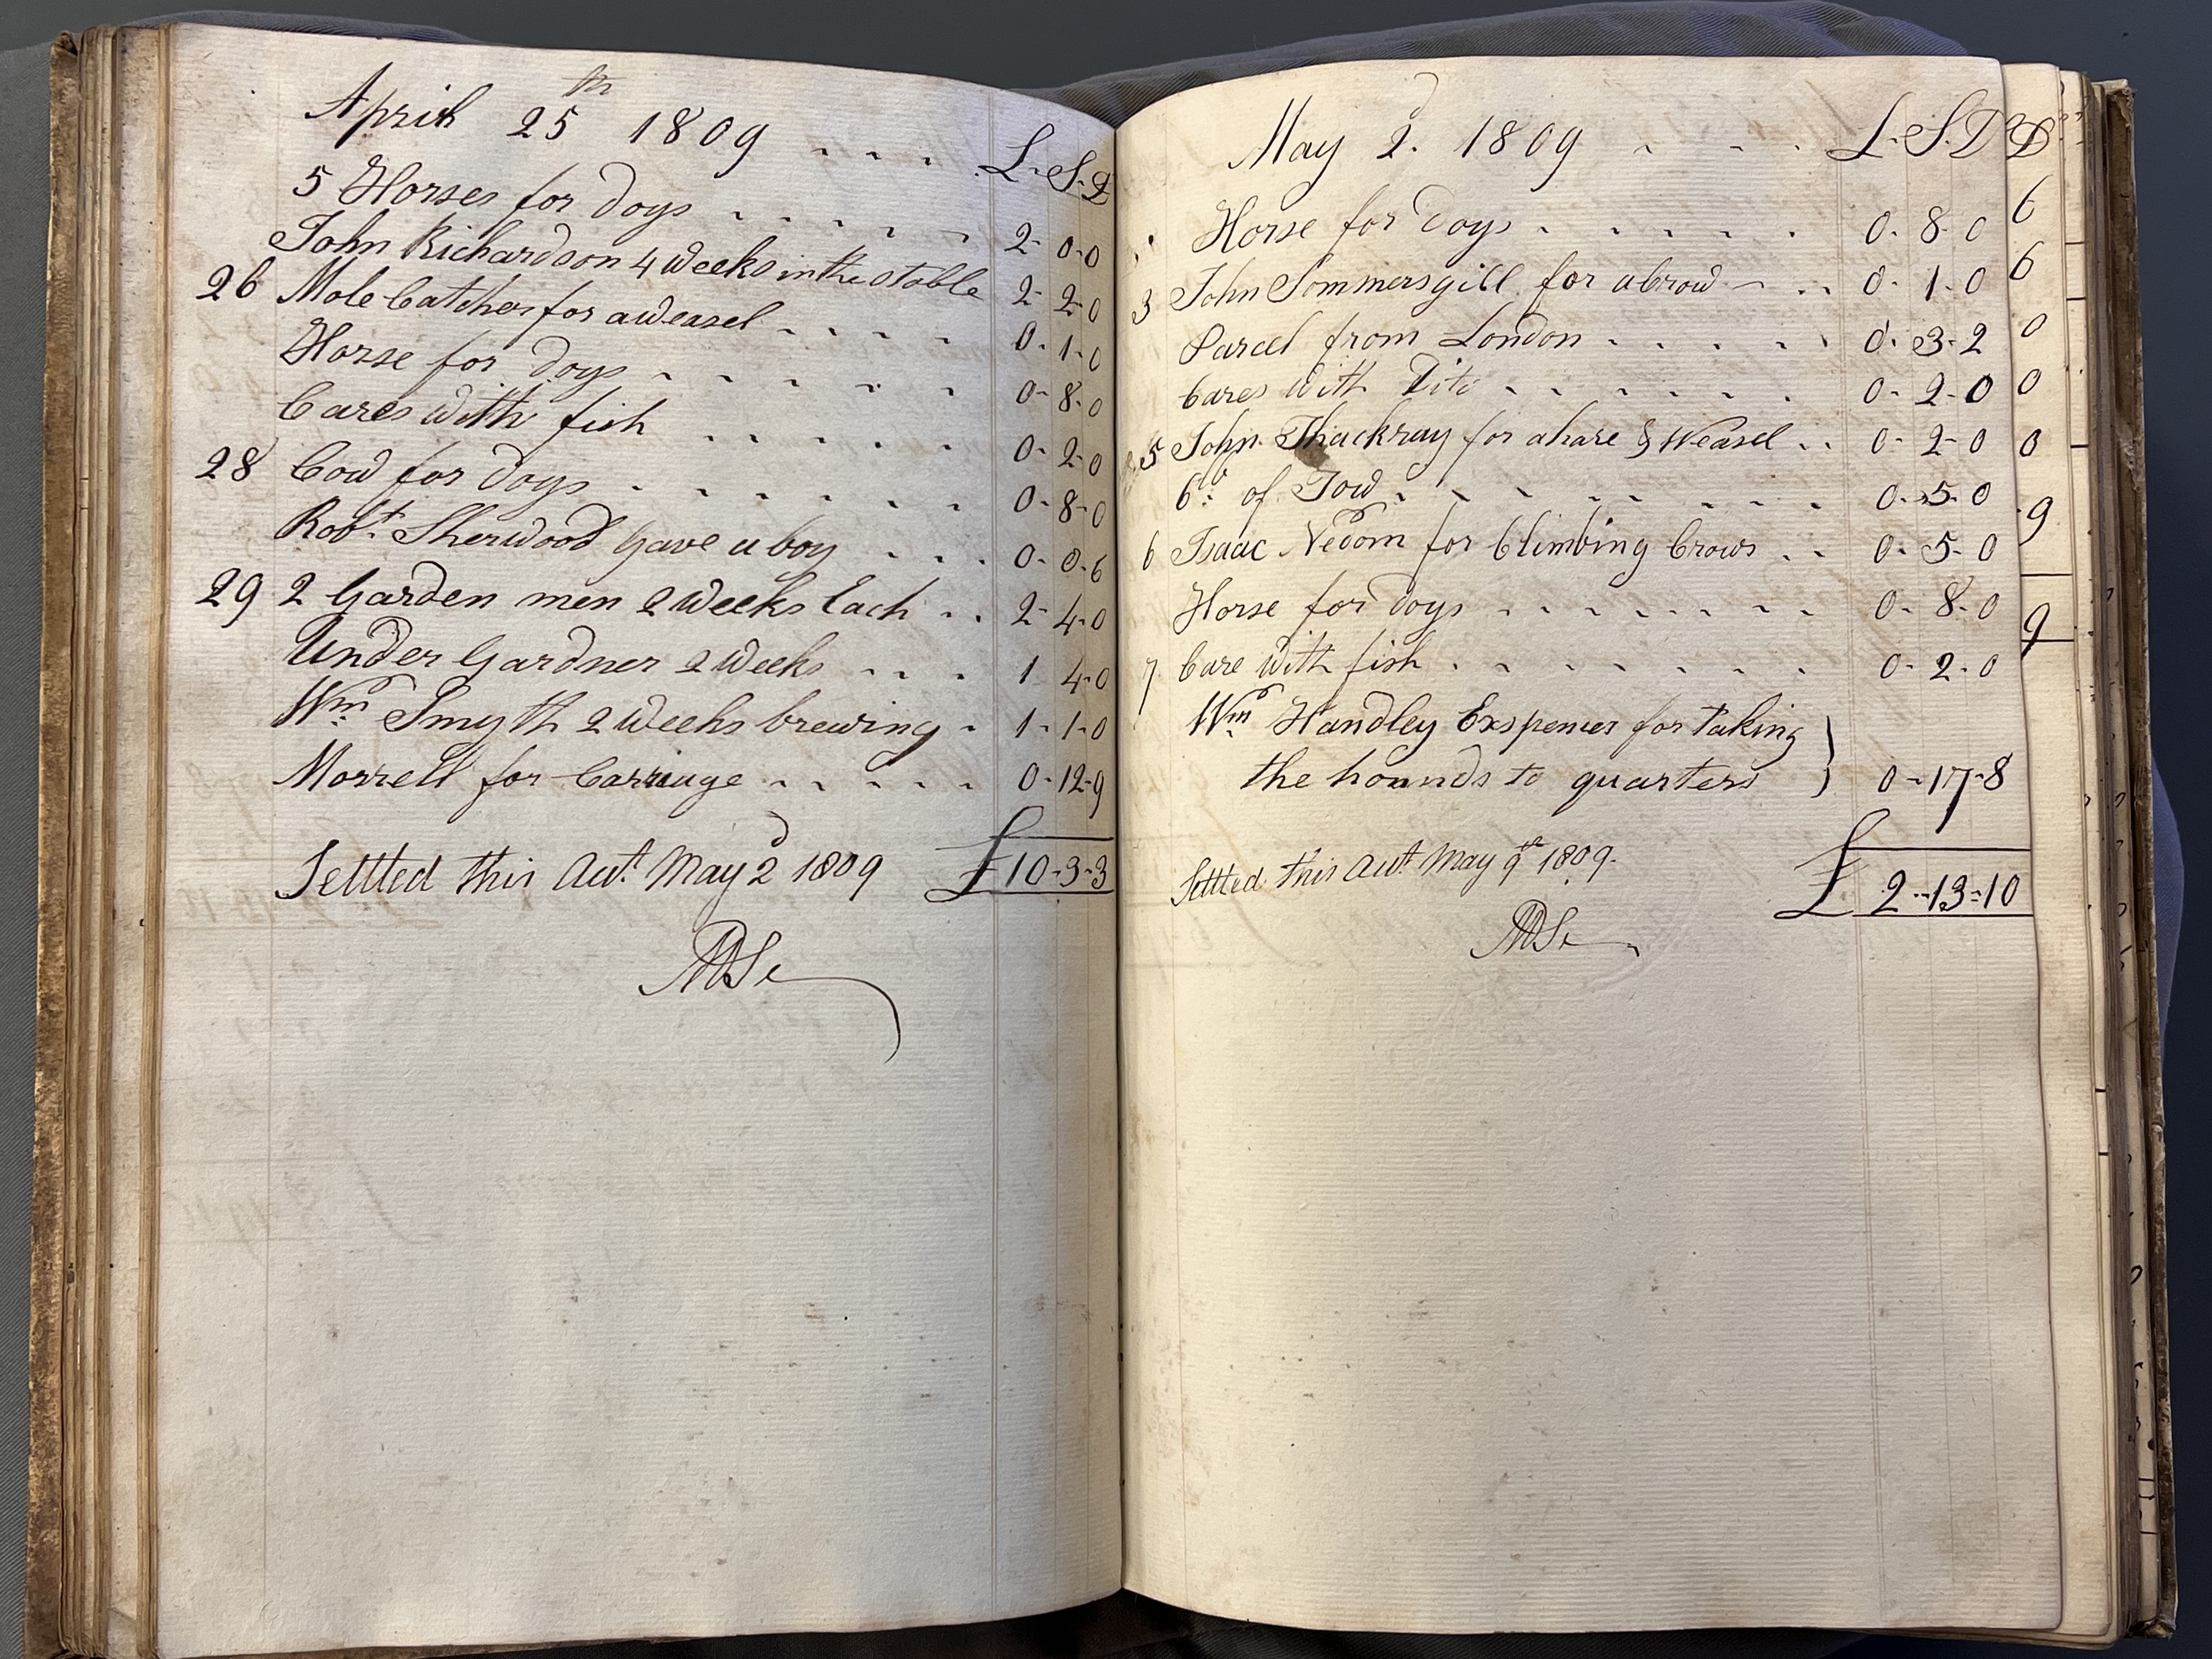 April 25th 1809 L. S. D
5 Horses for dogs 2- 0-0
John Richardson 4 weeks in the stable 2- 2-0
26 Mole Catcher for a Weasel 0- 1-0
Horse for dogs 0- 8-0
Cares with fish 0- 2-0
28 Cow for dogs 0- 8-0
Robt Sherwood Gave a boy 0- 0-6
29 2 Garden men 2 Weeks Each 2- 4-0
Under Gardner 2 Weeks 1 4-0
Wm Smyth 2 Weeks brewing 1- 1-0
Morrell for Carriage 0-12-9
Settled this Act May 2d 1809 £10-3-3
May 2d 1809 L. S. D
Horse for dogs 0- 8-0
3 John Sommersgill for a Crow 0- 1-0
Parcel from London 0- 3-2
Cares with Dito 0- 2-0
5 John Thackray for a hare & Weasel 0- 2-0
6lb of Tow 0- 5-0
6 Isaac Nedom for Climbing Crows 0- 5-0
Horse for dogs 0- 8-0
7 Care with fish 0- 2-0
Wm Handley Exspences for taking
the hounds to quarters 0-17-8
Settled this Act May 9th 1809. £ 2-13-10
D
6
6
0
0
0
9
9